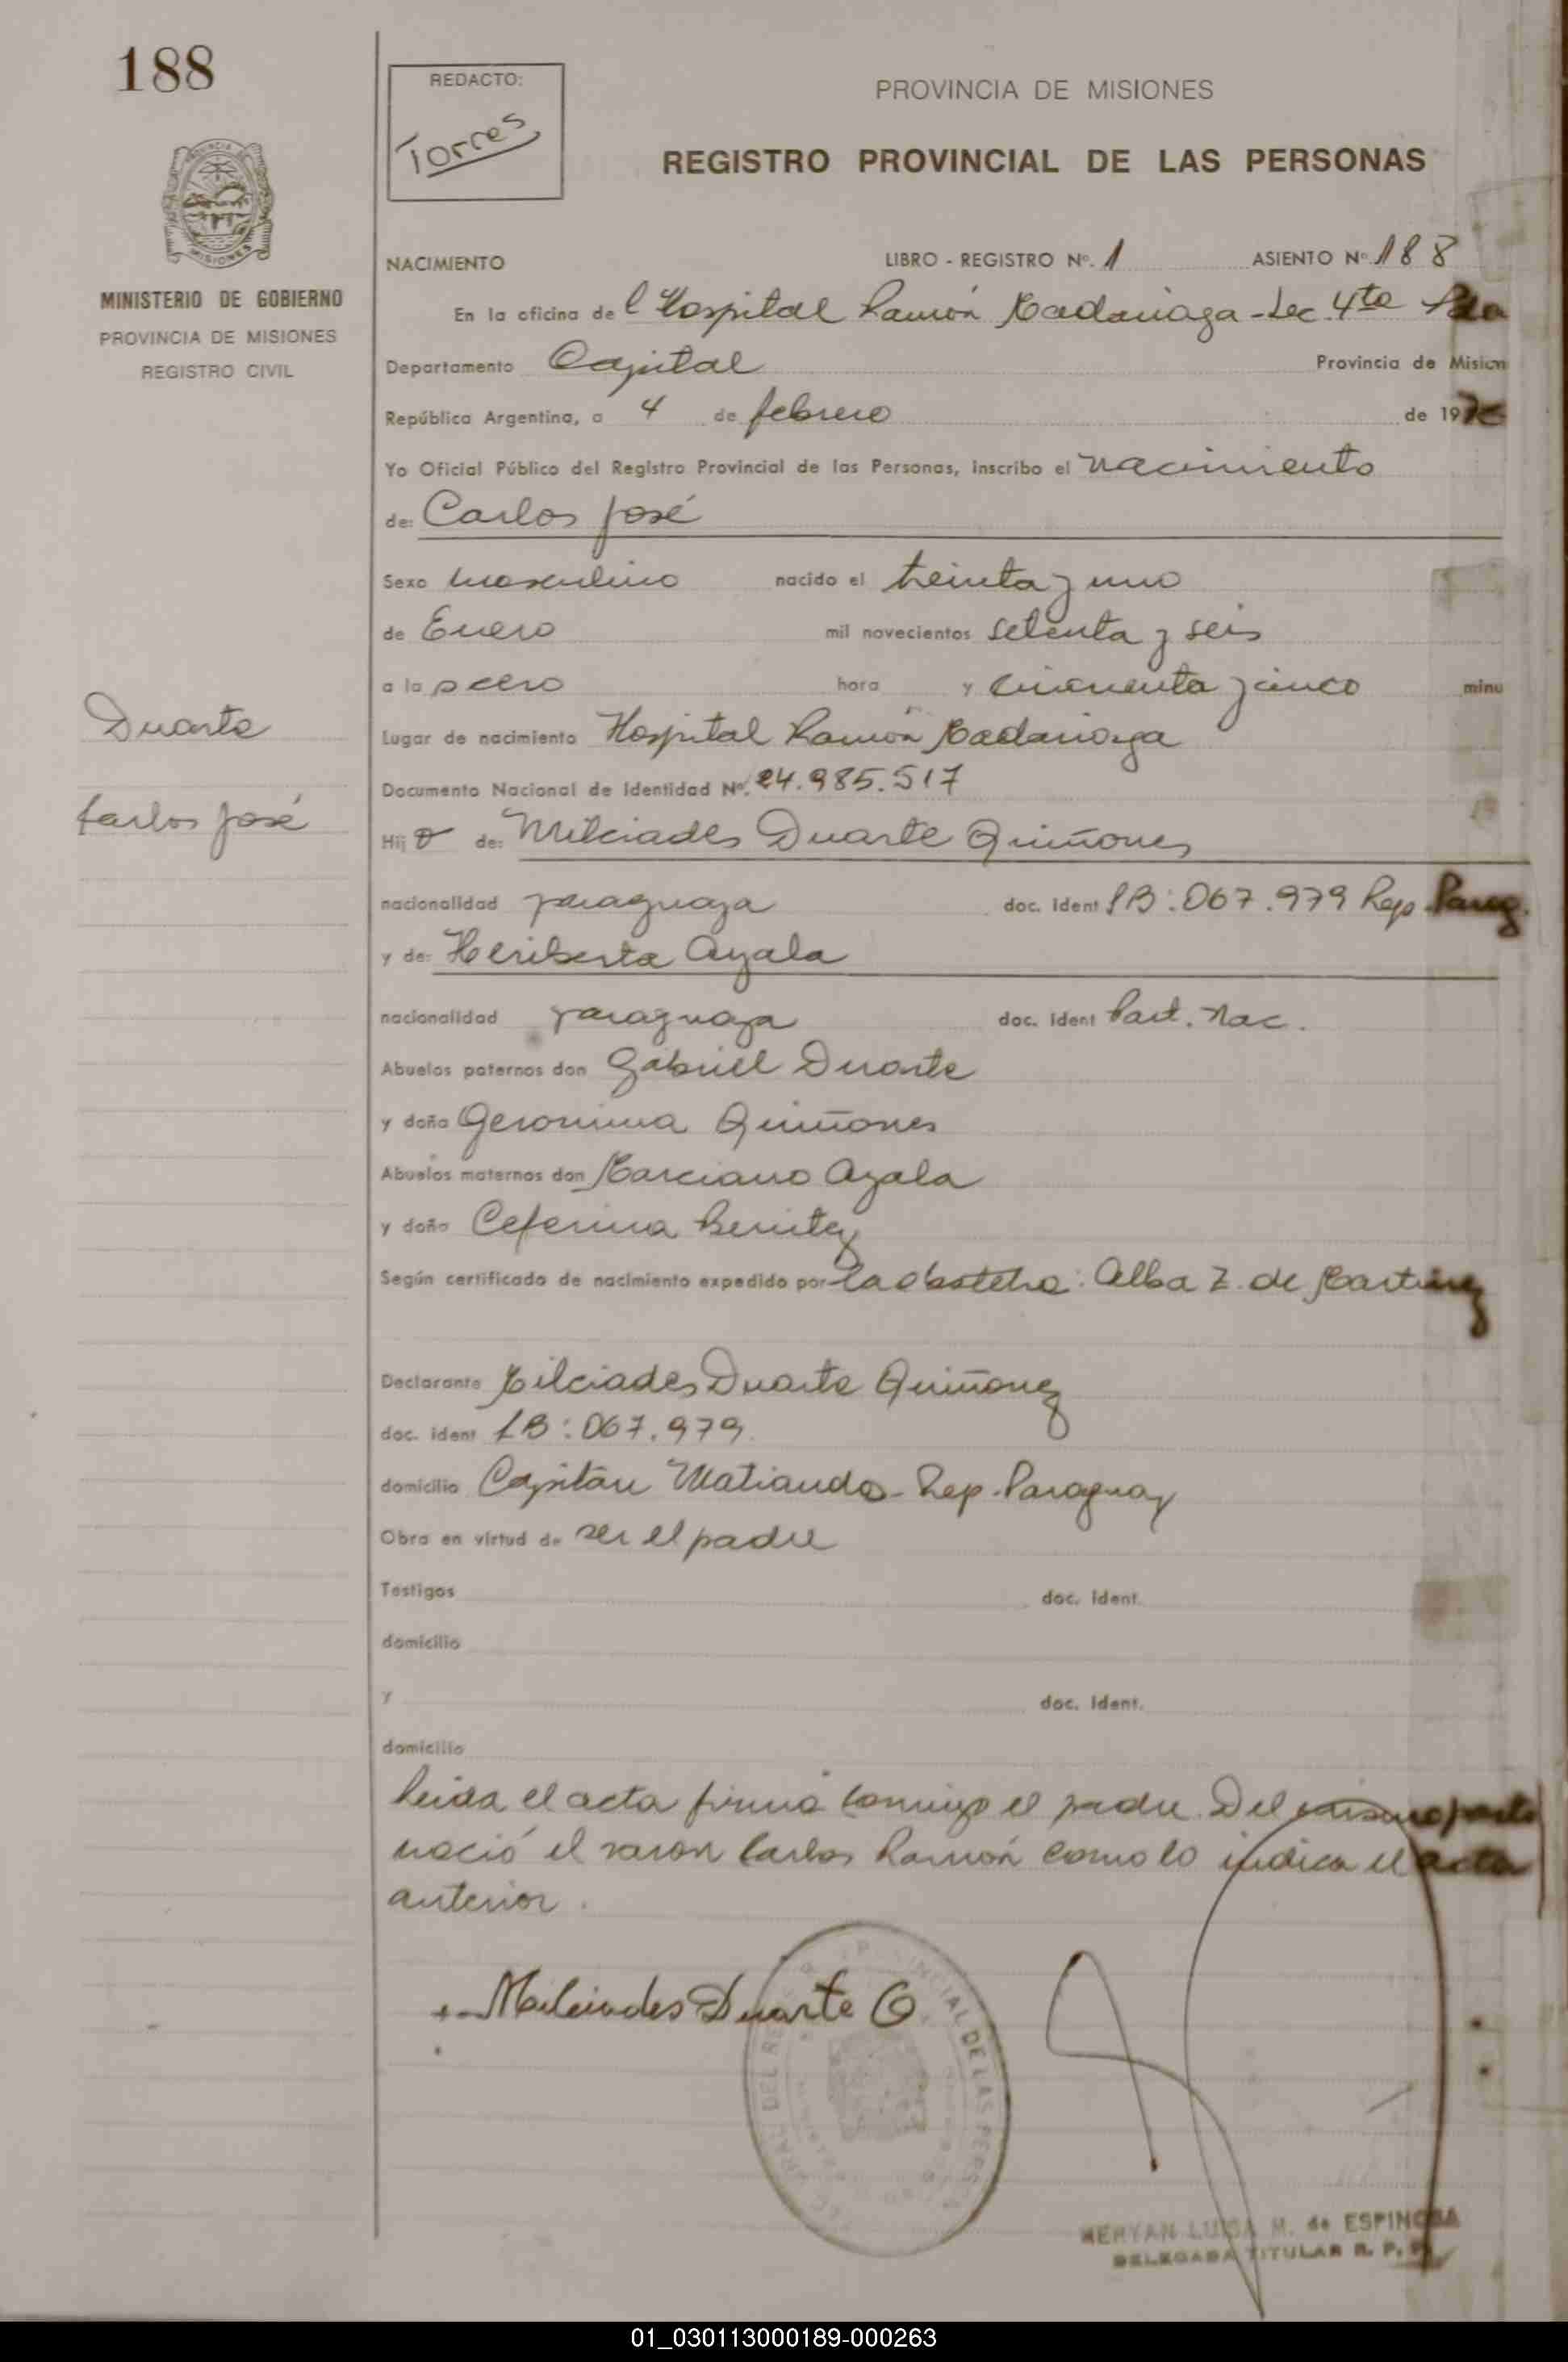 188
REDACTO:
Torres
PROVINCIA DE MISIONES
REGISTRO PROVINCIAL DE LAS PERSONAS
MINISTERIO DE GOBIERNO
PROVINCIA DE MISIONES
REGISTRO CIVIL
NACIMIENTO LIBRO - REGISTRO Nº. 1 ASIENTO Nº 188
En la oficina de l Hospital Ramón Madariaga - Sec. 4ta Pda
Departamento Capital Provincia de Mision
República Argentina, a 4 de febrero de 1976
Yo Oficial Público del Registro Provincial de las Personas, inscribo el nacimiento
de: Carlos José
Sexo masculino nacido el treinta y uno
de Enero mil novecientos setenta y seis
a la cero hora y cincuenta y cinco minu
Duarte
Carlos José
Lugar de nacimiento Hospital Ramón Madariaga
Documento Nacional de Identidad Nº. 24.985.517
Hij o de: Milciades Duarte Quiñones
nacionalidad paraguaya doc. ident 1B: 067.979 Rep. Parag.
y de: Heriberta Ayala
nacionalidad paraguaya doc. ident Part. Nac.
Abuelos paternos don Gabriel Duarte
y doña Geronima Quiñones
Abuelos maternos don Marciano Ayala
y doña Ceferina Benitez
Según certificado de nacimiento expedido por la obstetra: Alba Z. de Martinez
Declarante Milciades Duarte Quiñonez
doc. ident 1B: 067.979
domicilio Capitán Matiauda - Rep. Paraguay
Obra en virtud de ser el padre
Testigos doc. ident.
domicilio
y doc. ident.
domicilio
Leida el acta firma conmigo el padre. Del mismo parto
nació el varon Carlos Ramón como lo indica el acta
anterior.
Milciades Duarte Q
MERYAN LUISA M. de ESPINOSA
DELEGADA TITULAR R. P. P.
01_030113000189-000263